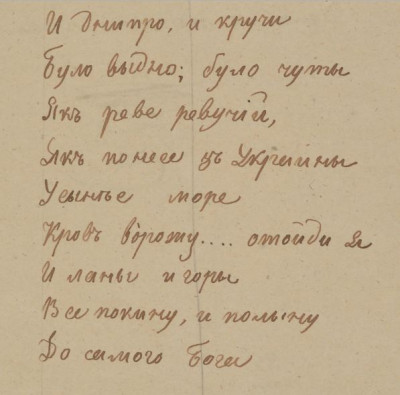 И Днипро, и кручи
Було выдно; було чуты
Якъ реве ревучій,
Якъ понесе зъ Украины
У сынѣе море
Кровъ ворожу.... отойди я
И ланы и горы
Все покину, и полыну
До самого Бога